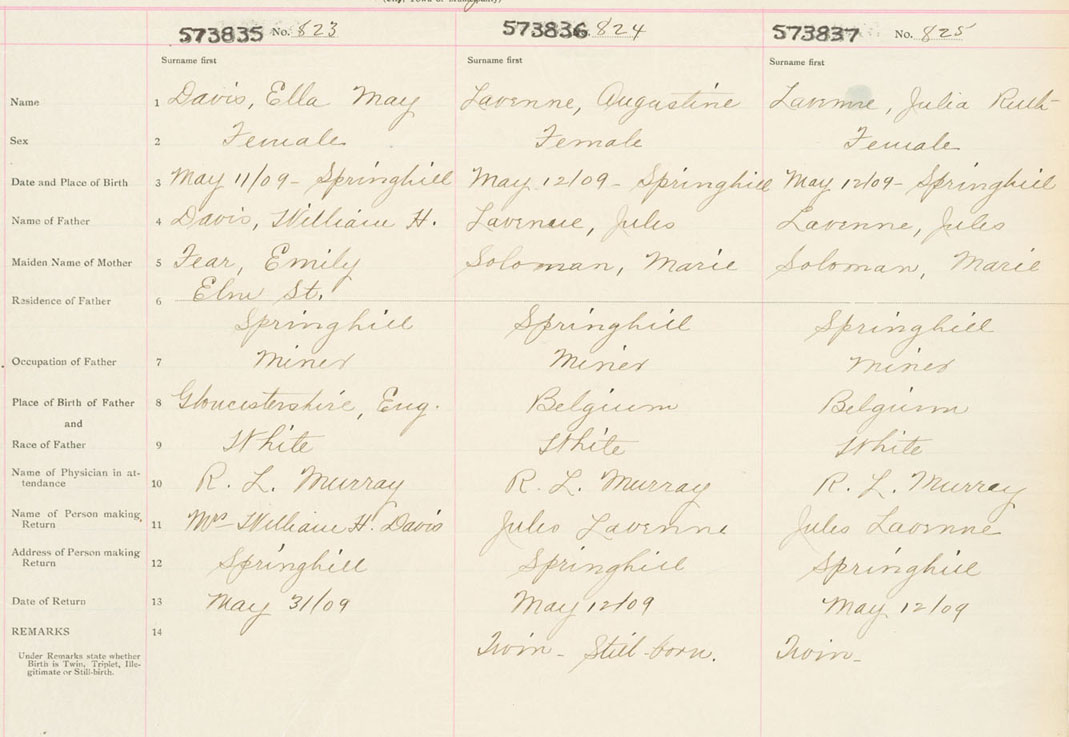 (City, Town or Municipality)
573835 No. 823 573836 824 573837 No. 825
Surname first Surname first Surname first
Name 1 Davis, Ella May Lavenne, Augustine Lavenne, Julia Ruth
Sex 2 Female Female Female
Date and Place of Birth 3 May 11/09 - Springhill May 12/09 - Springhill May 12/09 - Springhill
Name of Father 4 Davis, William H. Lavenne, Jules Lavenne, Jules
Maiden Name of Mother 5 Fear, Emily Soloman, Marie Soloman, Marie
Elm St.
Residence of Father 6
Springhill Springhill Springhill
Occupation of Father 7 Miner Miner Miner
Place of Birth of Father 8 Gloucestershire, Eng. Belgium Belgium
and
Race of Father 9 White White White
Name of Physician in at-
tendance 10 R. L. Murray R. L. Murray R. L. Murray
Name of Person making
Return 11 Mrs William H. Davis Jules Lavenne Jules Lavenne
Address of Person making
Return 12 Springhill Springhill Springhill
Date of Return 13 May 31/09 May 12/09 May 12/09
REMARKS 14
Twin - Still-born. Twin -
Under Remarks state whether
Birth is Twin, Triplet, Ille-
gitimate or Still-birth.